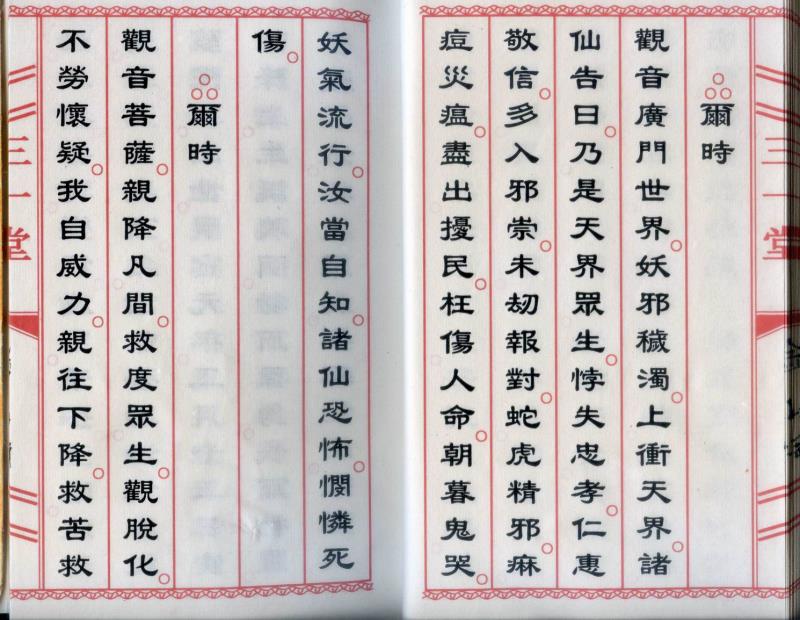 三一堂
爾時
觀音廣門世界。妖邪穢濁。上衝天界。諸
仙告曰。乃是天界眾生。悖失忠孝。仁惠
敬信。多入邪崇。未刧報對。蛇虎精邪。麻
痘災瘟。盡出擾民。枉傷人命。朝暮鬼哭。
妖氣流行。汝當自知。諸仙恐怖。憫憐死
傷。
爾時
觀音菩薩。親降凡間。救度眾生。觀脫化。
不勞懷疑。我自威力。親往下降。救苦救
三一堂